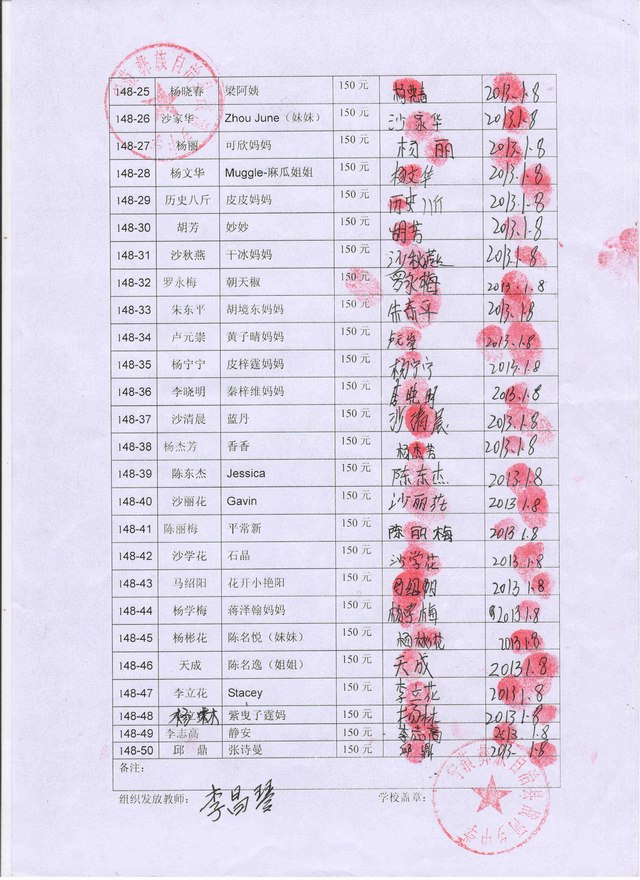 148-25 杨晓春 梁阿姨 150 元 2013.1.8
148-26 沙家华 Zhou June（妹妹） 150 元 沙家华 2013.1.8
148-27 杨丽 可欣妈妈 150 元 杨丽 2013.1.8
148-28 杨文华 Muggle-麻瓜姐姐 150 元 杨文华 2013.1.8
148-29 历史八斤 皮皮妈妈 150 元 历史八斤 2013.1.8
148-30 胡芳 妙妙 150 元 胡芳 2013.1.8
148-31 沙秋燕 干冰妈妈 150 元 沙秋燕 2013.1.8
148-32 罗永梅 朝天椒 150 元 罗永梅 2013.1.8
148-33 朱东平 胡境东妈妈 150 元 朱东平 2013.1.8
148-34 卢元崇 黄子晴妈妈 150 元 2013.1.8
148-35 杨宁宁 皮梓霆妈妈 150 元 杨宁宁 2013.1.8
148-36 李晓明 秦梓维妈妈 150 元 李晓明 2013.1.8
148-37 沙清晨 蓝丹 150 元 沙清晨 2013.1.8
148-38 杨杰芳 香香 150 元 杨杰芳 2013.1.8
148-39 陈东杰 Jessica 150 元 陈东杰 2013.1.8
148-40 沙丽花 Gavin 150 元 沙丽花 2013 1.8
148-41 陈丽梅 平常新 150 元 陈丽梅 2013 1.8
148-42 沙学花 石晶 150 元 沙学花 2013 1.8
148-43 马绍阳 花开小艳阳 150 元 2013 1.8
148-44 杨学梅 蒋泽翰妈妈 150 元 杨学梅 2013 1.8
148-45 杨彬花 陈名悦（妹妹） 150 元 杨彬花 2013 1.8
148-46 天成 陈名逸（姐姐） 150 元 天成 2013 1.8
148-47 李立花 Stacey 150 元 李立花 2013 1.8
148-48 杨 紫曳子霆妈 150 元 杨林 2013 1.8
148-49 李志高 静安 150 元 李志高 2013.1.8
148-50 邱 鼎 张诗曼 150 元 邱 鼎 2013 1.8
备注：
组织发放教师： 学校盖章：